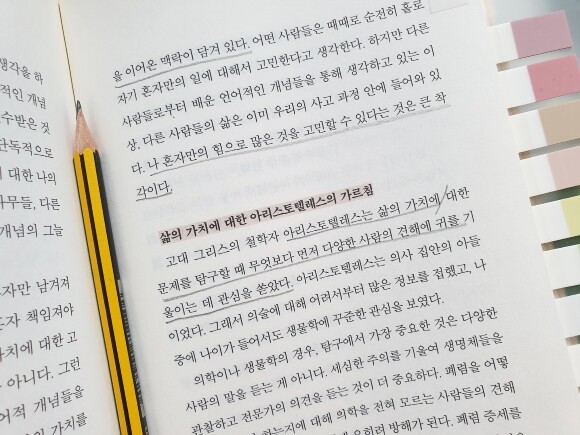 생각을 하
적인 개념
수받은 것
단독적으로
대한 나의
나무들, 다른
개념의 그늘
혼자만 남겨져
혼자 책임져야
가치에 대한 고
아니다. 그런
언어적 개념들을
가치를
을 이어온 맥락이 담겨 있다. 어떤 사람들은 때때로 순전히 홀로
자기 혼자만의 일에 대해서 고민한다고 생각한다. 하지만 다른
사람들로부터 배운 언어적인 개념들을 통해 생각하고 있는 이
상, 다른 사람들의 삶은 이미 우리의 사고 과정 안에 들어와 있
다. 나 혼자만의 힘으로 많은 것을 고민할 수 있다는 것은 큰 착
각이다.
삶의 가치에 대한 아리스토텔레스의 가르침
고대 그리스의 철학자 아리스토텔레스는 삶의 가치에 대한
문제를 탐구할 때 무엇보다 먼저 다양한 사람의 견해에 귀를 기
울이는 데 관심을 쏟았다. 아리스토텔레스는 의사 집안의 아들
이었다. 그래서 의술에 대해 어려서부터 많은 정보를 접했고, 나
중에 나이가 들어서도 생물학에 꾸준한 관심을 보였다.
의학이나 생물학의 경우, 탐구에서 가장 중요한 것은 다양한
사람의 말을 듣는 게 아니다. 세심한 주의를 기울여 생명체들을
관찰하고 전문가의 의견을 듣는 것이 더 중요하다. 폐렴을 어떻
하는지에 대해 의학을 전혀 모르는 사람들의 견해
오히려 방해가 된다. 폐렴 증세를